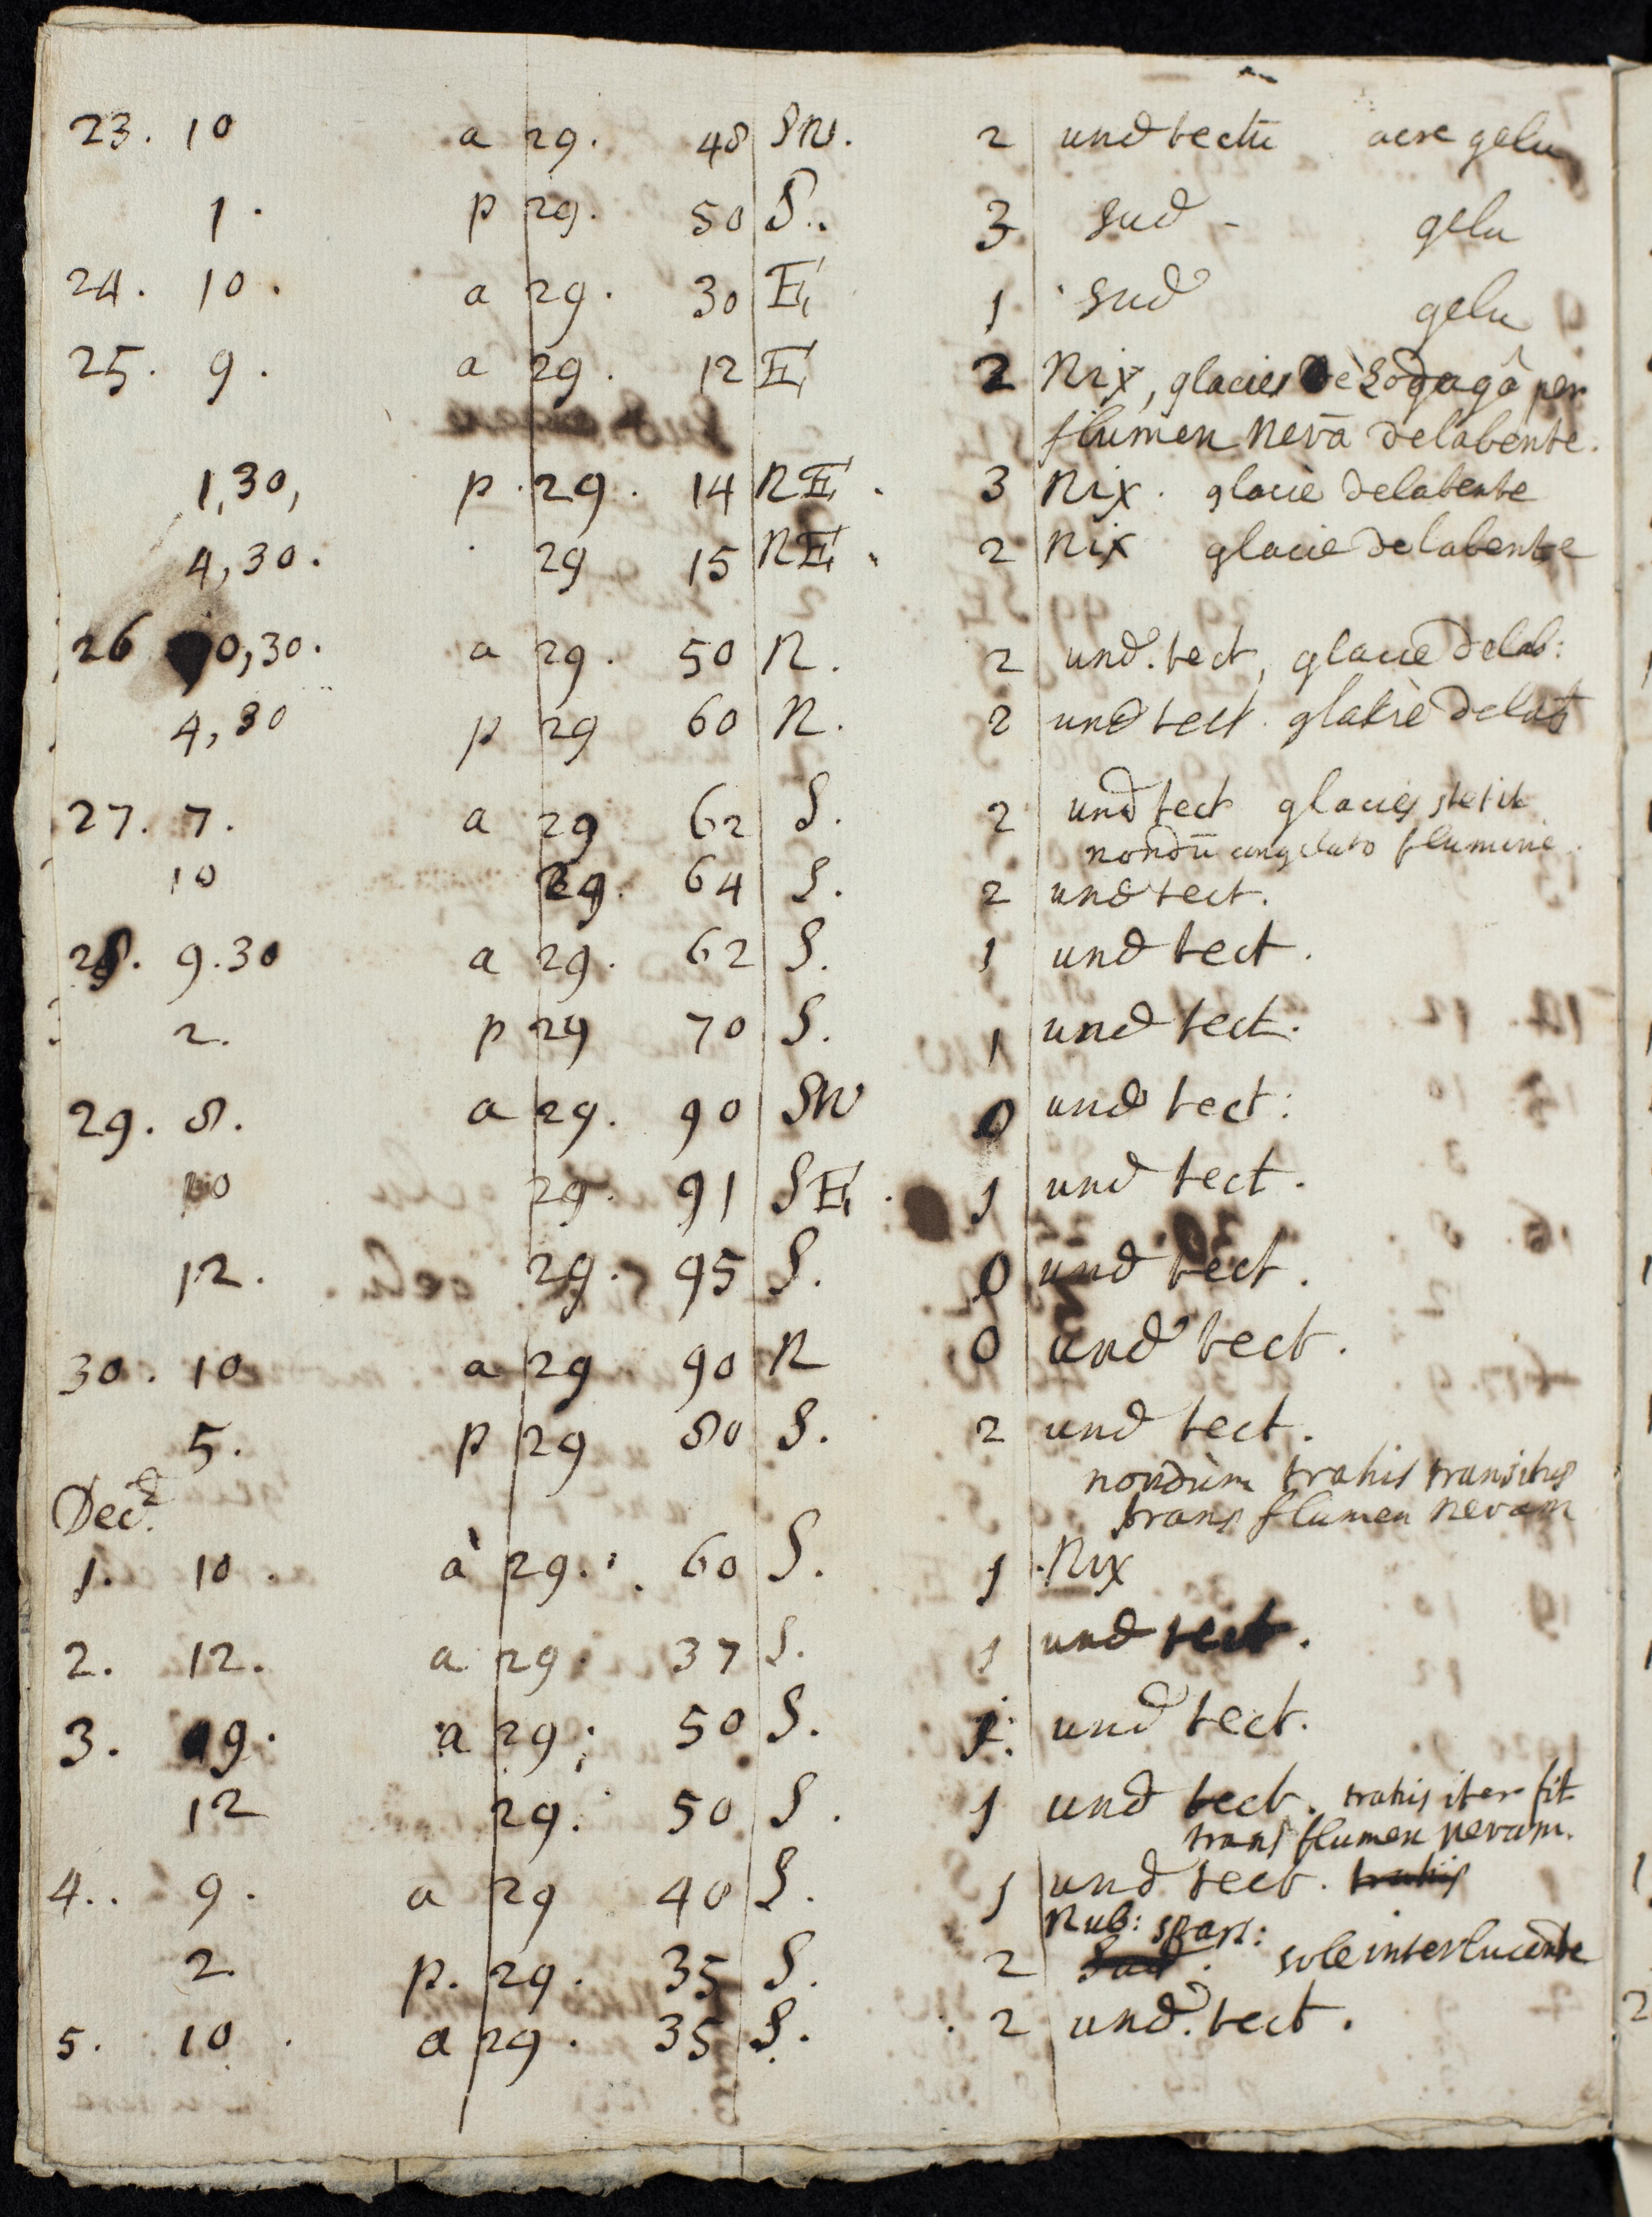 23. 10 a 29. 48 SW. 2 und tectū acre gelu
1. p 29. 50 S. 3 sud - gelu
24. 10. a 29. 30 E 1 sud gelu
25. 9. a 29. 12 E 2 Nix, glacies è per
flumen Nevā delabente.
1,30, p. 29. 14 NE. 3 Nix. glaciè delabente
4,30. 29 15 NE. 2 Nix glacie delabente
26 10,30. a 29. 50 N. 2 und. tect, glacie delab:
4,30 p 29 60 N. 2 und tect. glaciè delab
27. 7. a 29 62 S. 2 und tect glacies stetit
nondū congelato flumine.
10 29. 64 S. 2 und tect.
28. 9.30 a 29. 62 S. 1 und tect.
2. p 29 70 S. 1 und tect.
29. 8. a 29. 90 SW 0 und tect:
10 29. 91 SE. 1 und tect.
12. 29. 95 S. 0 und tect.
30. 10 a 29 90 N 0 und tect.
5. p 29 80 S. 2 und tect.
nondùm trahis transitus
trans flumen Nevam
Dec.
1. 10. à 29. 60 S. 1 Nix
2. 12. a 29. 37 S. 1 und tect.
3. 9. a 29. 50 S. 1. und tect.
12 29. 50 S. 1 und tect. trahis iter fit
trans flumen Nevam.
4.. 9. a 29 40 S. 1 und tect. trahis
Nub: spars:
2. p. 29. 35 S. 2 Sud. sole interlucente
5. 10. a 29. 35 S. 2 und. tect.